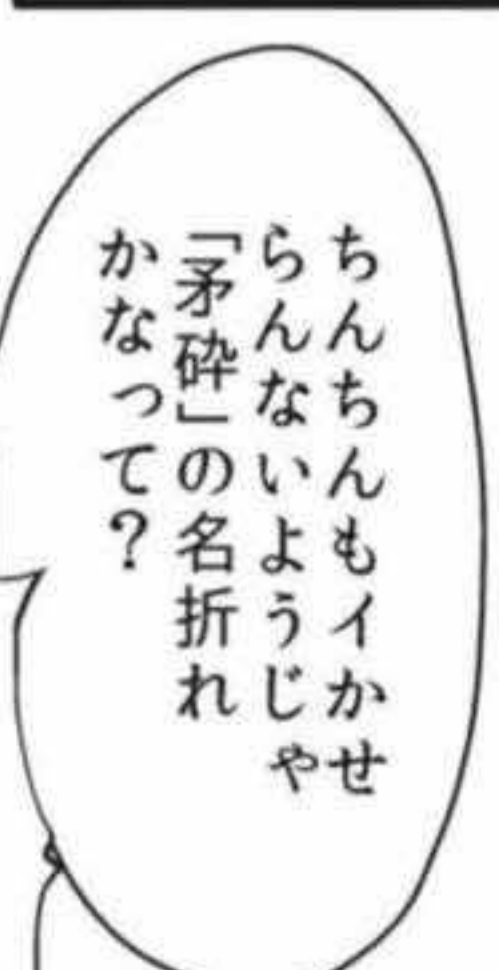 ちんちんもイかせ
らんないようじゃ
「矛砕」の名折れ
かなって？